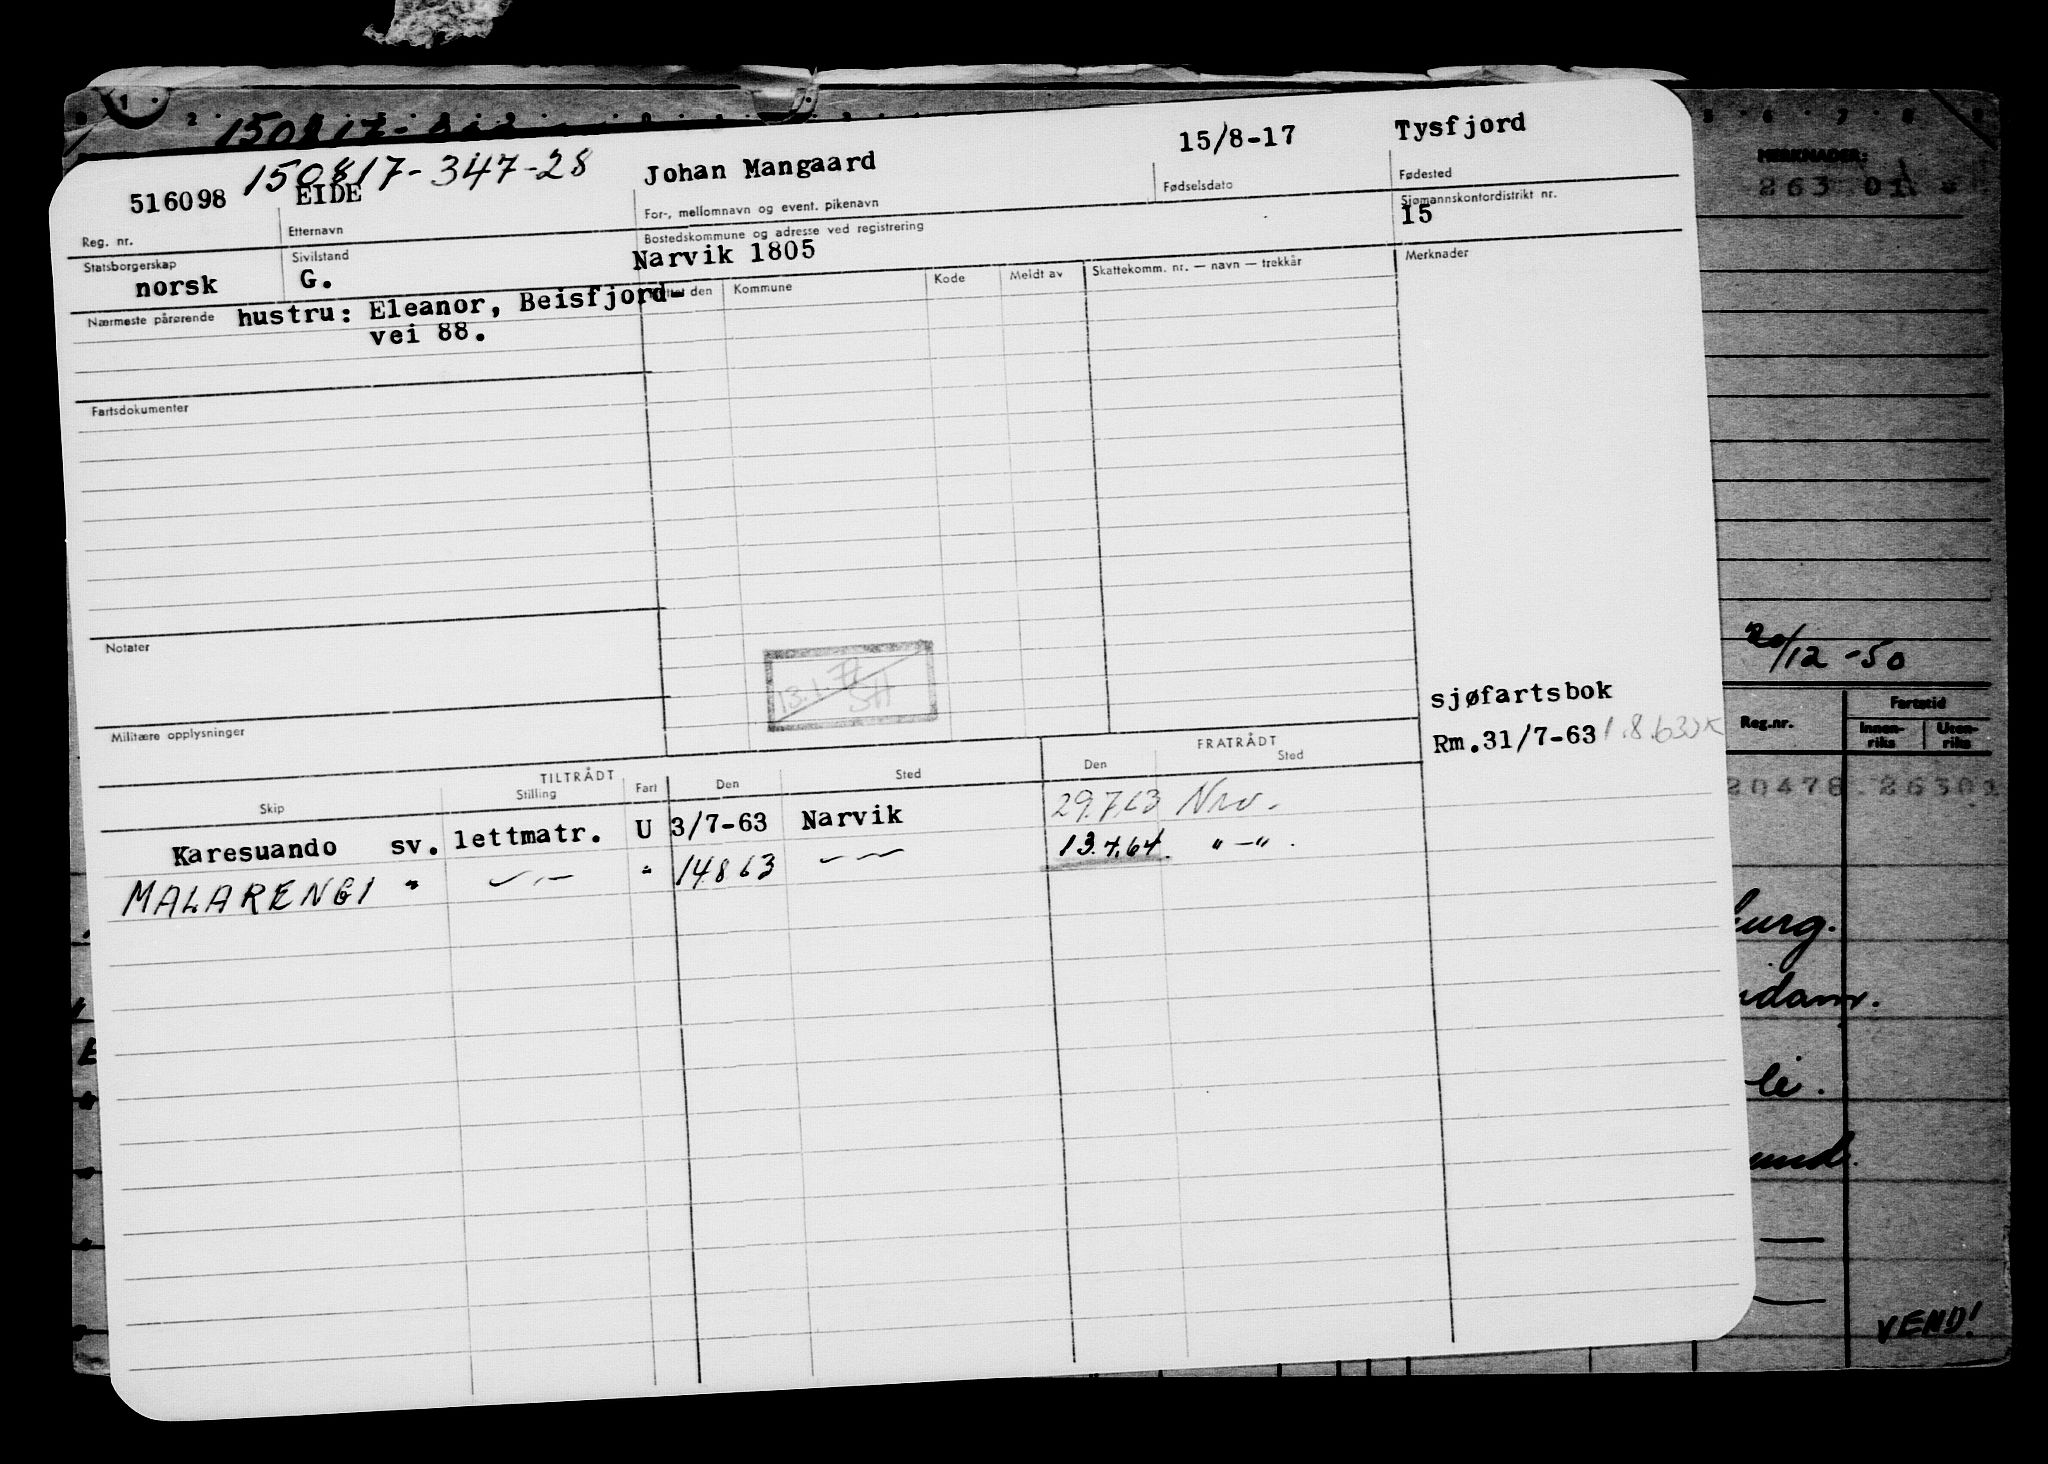 150817-347-28
516098 EIDE Johan Mangaard 15/8-17 Tysfjord
Reg. nr. Etternavn For-, mellomnavn og event. pikenavn Fødselsdato Fødested
Statsborgerskap Sivilstand Bostedskommune og adresse ved registrering Sjømannskontordistrikt nr.
norsk G. Narvik 1805 15
Nærmeste pårørende hustru: Eleanor, Beisfjord-
vei 88.
den Kommune Kode Meldt av Skattekomm. nr. — navn — trekkår Merknader
Fartsdokumenter
Notater
Militære opplysninger
sjøfartsbok
Rm.31/7-63
TILTRÅDT FRATRÅDT
Skip Stilling Fart Den Sted Den Sted
Karesuando sv. lettmatr. U 3/7-63 Narvik 29.7.63 Nrv.
MALARENGI " — " — " 14.8.63 — " — 13.4.64. " — " .
MERKNADER:
263 01
20/12 -50
Reg.nr. Fartstid
Innen-
riks
Uten-
riks
20478 26301
VEND!